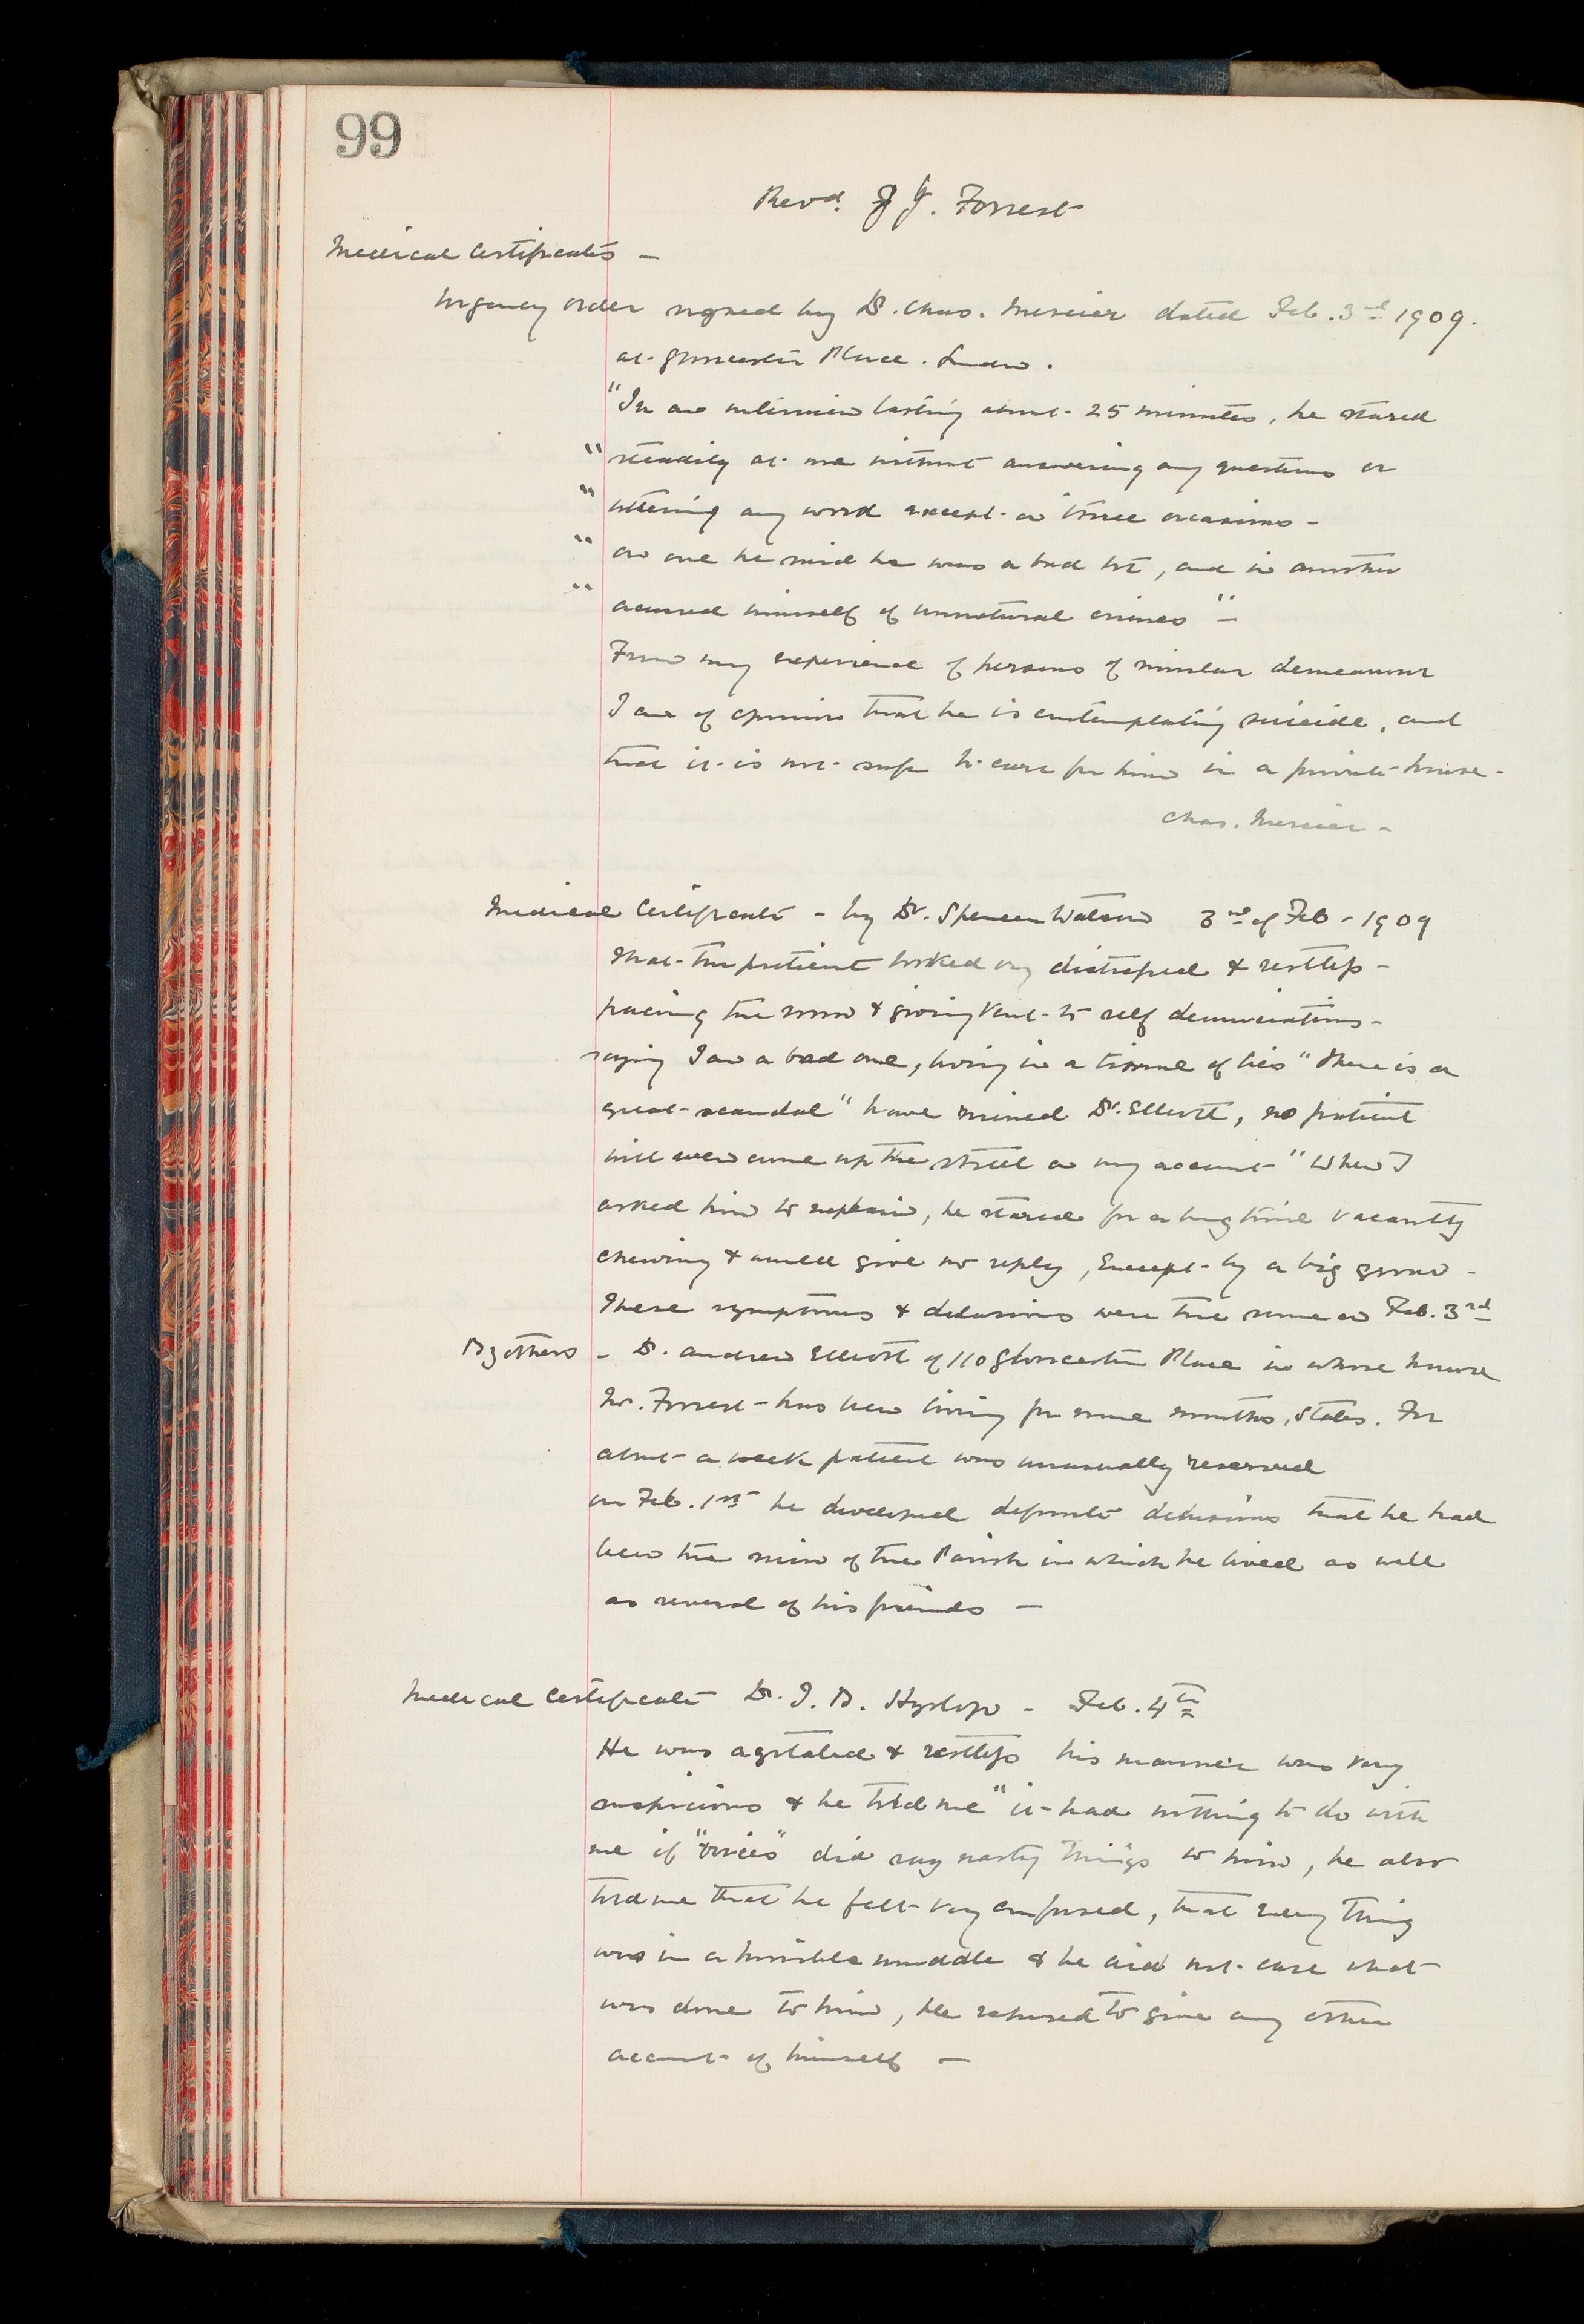 99
Revd. J. Forrest
Medical Certificates -
Urgency order signed by Dr. Chas. Mercier dated Feb. 3rd 1909.
at Gloucester Place. London.
"In an interview lasting about 25 minutes, he stared
" steadily at me without answering any questions or
" uttering any word except on three occasions -
" on one he said he was a bad lot, and in another
" accused himself of unnatural crimes " -
From my experience of persons of similar demeanour
I am of opinion that he is contemplating suicide, and
that it is not safe to care for him in a private house -
Chas. Mercier -
Medical Certificate - by Dr. Spencer Watson 3rd of Feb - 1909
That the patient looked very distressed & restless -
pacing the room & giving vent to self denunciations -
saying I am a bad one, living in a tissue of lies " there is a
great scandal " have ruined Dr. Elliott, no patient
will ever come up the street on my account " When I
asked him to explain, he stared for a long time vacantly
chewing & would give no reply, Except by a big groan -
These symptoms & delusions were the same on Feb. 3rd
By others - Dr. Andrew Elliott of 110 Gloucester Place in whose house
Mr. Forrest has been living for some months, States. For
about a week patient was unusually reserved
on Feb. 1st he developed definite delusions that he had
been the ruin of the Parish in which he lived as well
as several of his friends -
Medical Certificate Dr. T. B. Hyslop - Feb. 4th
He was agitated & restless his manner was very
suspicious & he told me " it had nothing to do with
me if "voices" did say nasty things to him, he also
told me that he felt very confused, that every thing
was in a horrible muddle & he did not care what
was done to him, He refused to give any other
account of himself -